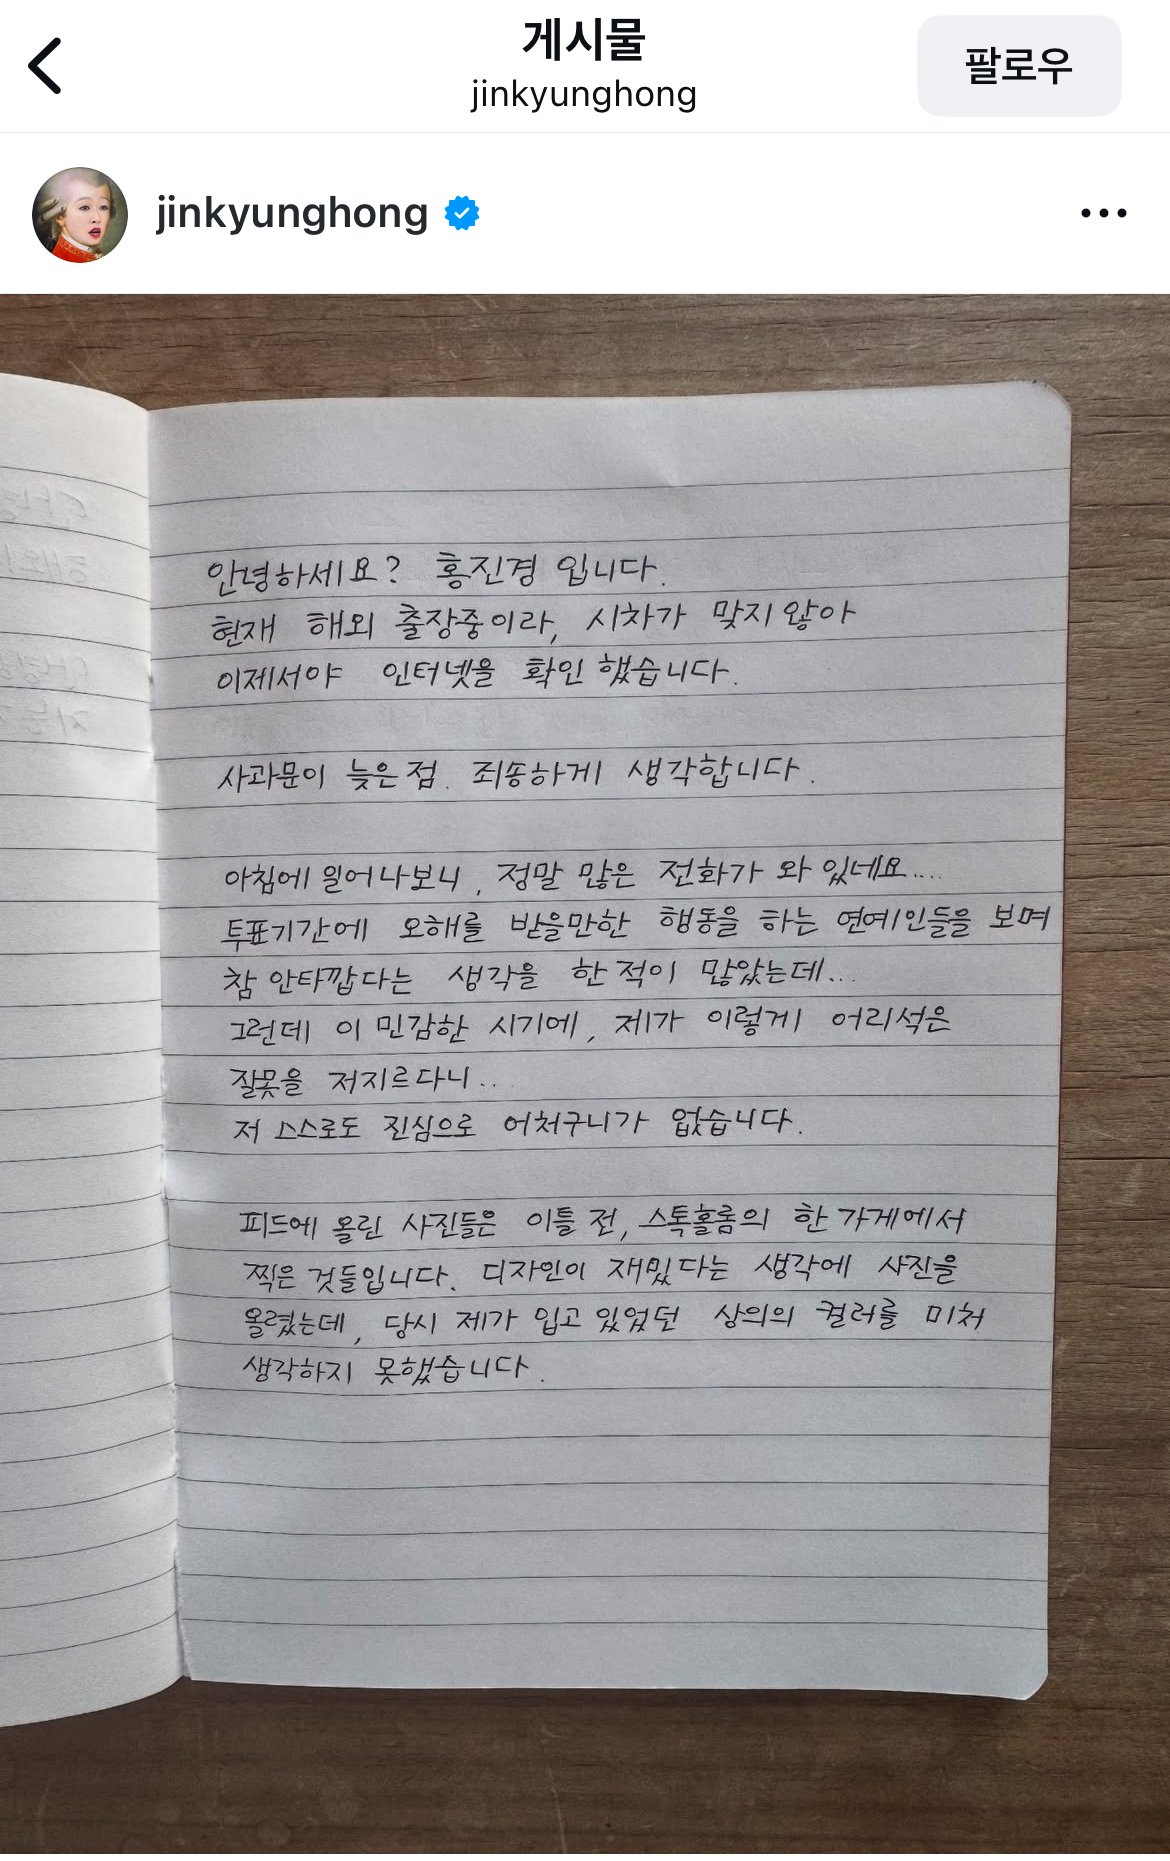 게시물
jinkyunghong
팔로우
jinkyunghong
안녕하세요? 홍진경 입니다.
현재 해외 출장중이라, 시차가 맞지 않아
이제서야 인터넷을 확인 했습니다.
사과문이 늦은점. 죄송하게 생각합니다.
아침에 일어나보니, 정말 많은 전화가 와 있네요....
투표기간에 오해를 받을만한 행동을 하는 연예인들을 보며
참 안타깝다는 생각을 한 적이 많았는데...
그런데 이 민감한 시기에, 제가 이렇게 어리석은
잘못을 저지르다니..
저 스스로도 진심으로 어처구니가 없습니다.
피드에 올린 사진들은 이틀 전, 스톡홀롬의 한 가게에서
찍은 것들입니다. 디자인이 재밌다는 생각에 사진을
올렸는데, 당시 제가 입고 있었던 상의의 컬러를 미처
생각하지 못했습니다.